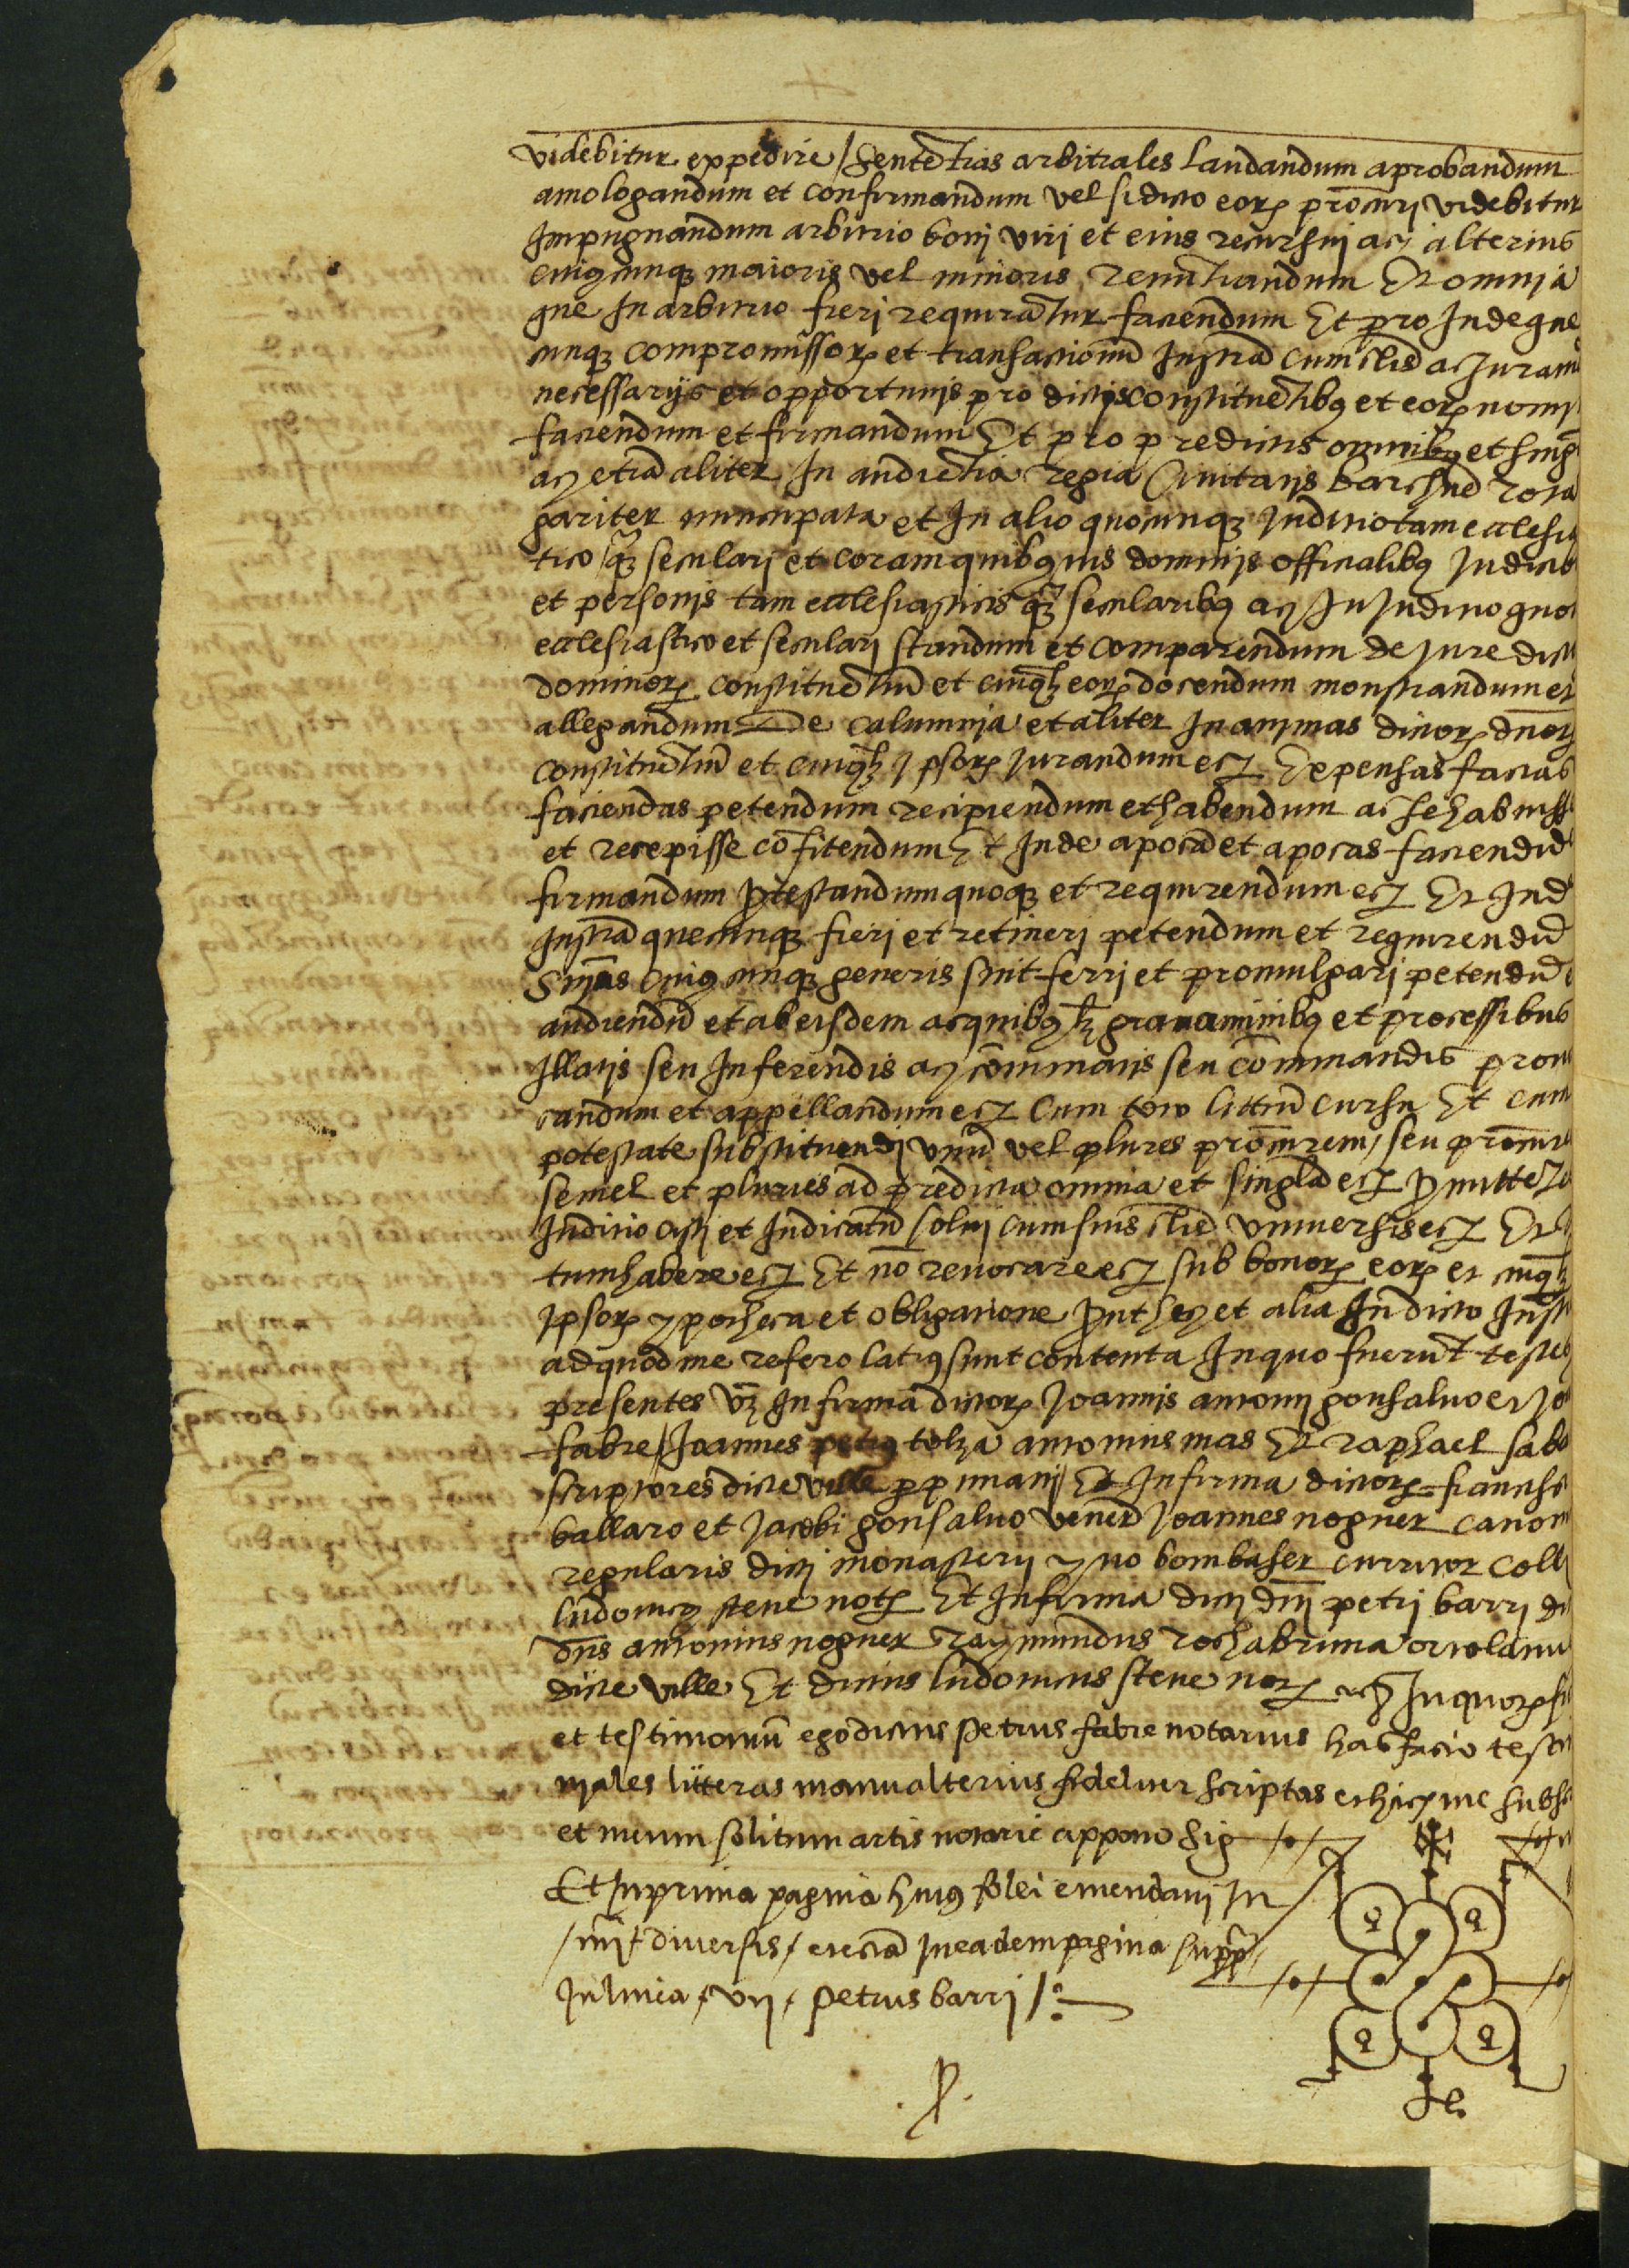 videbitur expedire / Sentētias arbitrales laudandum aprobandum
amologandum et confirmandum vel si dicto eorꝝ procūri videbitur
Impugnandum arbitrio bonj virj et eius recursuj acj alterius
cuiuscunqꝫ maioris vel minoris renūtiandum Et omnja
que In arbitrio fierj requirātur faciendum Et pro Inde que
cunqꝫ compromissorꝝ et transactionū Instrā cum clīs ac Juram
necessarijs et opportunis pro dictis constituētibꝰ et eorꝝ nomj
faciendum et firmandum Et pro predictis omnibꝰ et sing
acj etiā aliter In audiētia regia Civitatis barchne rota
gariter nuncupata et In alio quocunqꝫ Juditio tam ecclesia
tico qꝫ secularj et coram quibusvis dominjs officialibꝰ Judicib
et personis tam ecclesiasticis qꝫ secularibꝰ acj In Juditio quo
ecclesiastico et secularj standum et comparendum de Jure dict
dominorꝝ constituētiū et cuiuslꝫ eorꝝ docendum monstrandum et
allegandum De calumnja et aliter In animas dictorꝝ dnorꝝ
constituētiū et cuiuslꝫ Ipsorꝝ Jurandum ectꝫ Expensas factas
faciendas petendum recipiendum et habendum ac se habuiss
et recepisse cōfitendum Et Inde apocā et apocas faciendū
firmandum protestandum quoqꝫ et requirendum ectꝫ Et Ind
Instrā quecunqꝫ fierj et retinerj petendum et requirendū
Snjās cuiuscunqꝫ generis sint ferrj et promulgarj petendū
audiendū et ab eisdem ac quibuslꝫ grauaminibꝰ et processibus
Illatis seu Inferendis acj cōminatis seu cōminandis prouo
candum et appellandum ectꝫ Cum toto littiū cursu Et cum
potestate substituendj vnū vel plures procūrem / seu procūre
semel et pluries ad predicta omnia et singlā ectꝫ promittētes
Juditio sistj et Judicatū soluj cum suis clīs vniuersis ectꝫ Et
tum habere ectꝫ Et nō reuocare ectꝫ sub bonorꝝ eorꝝ et cuiuslꝫ
Ipsorꝝ ypotheca et obligatione prout hecj et alia In dicto Inst
ad quod me refero latiꝰ sunt contenta In quo fuerūt testes
presentes vꝫ In firma dictorꝝ Joannis antonij gonsaluo et Jo
fabre / Joannes petrꝰ tolza antonius mas Et raphael sab
scriptores dicte ville perpinianj / Et In firma dictorꝝ francis
ballaro et Jacobi gonsaluo vener Joannes noguer canon
regularis dictj monasterij yuo bombaser curritor coll
ludouicꝰ steue notꝝ Et In firma dictj dnj petrj barrj di
dns antonius noguer raymundus rochabruna ortolanu
dicte ville Et dictus ludouicus steue notꝝ ectꝫ In quorꝝ fi
et testimoniū ego dictus Petrus fabre notarius has facio testi
niales litteras manu alterius fideliter scriptas et hicj me subs
et meum solitum artis notarie appono sig
Et In prima pagina huiꝰ folei emendauj In
/ iiij / diuersis / et etiā In eadem pagina suppᵒ
In linea / vij / petrus barrj /
.P.